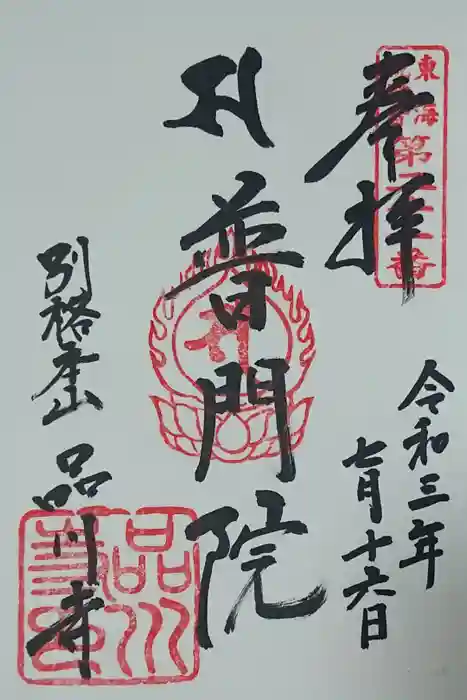 奉拝
東海
第三十一番
令和三年
七月十六日
普門院
別格本山
品川寺
品川寺印